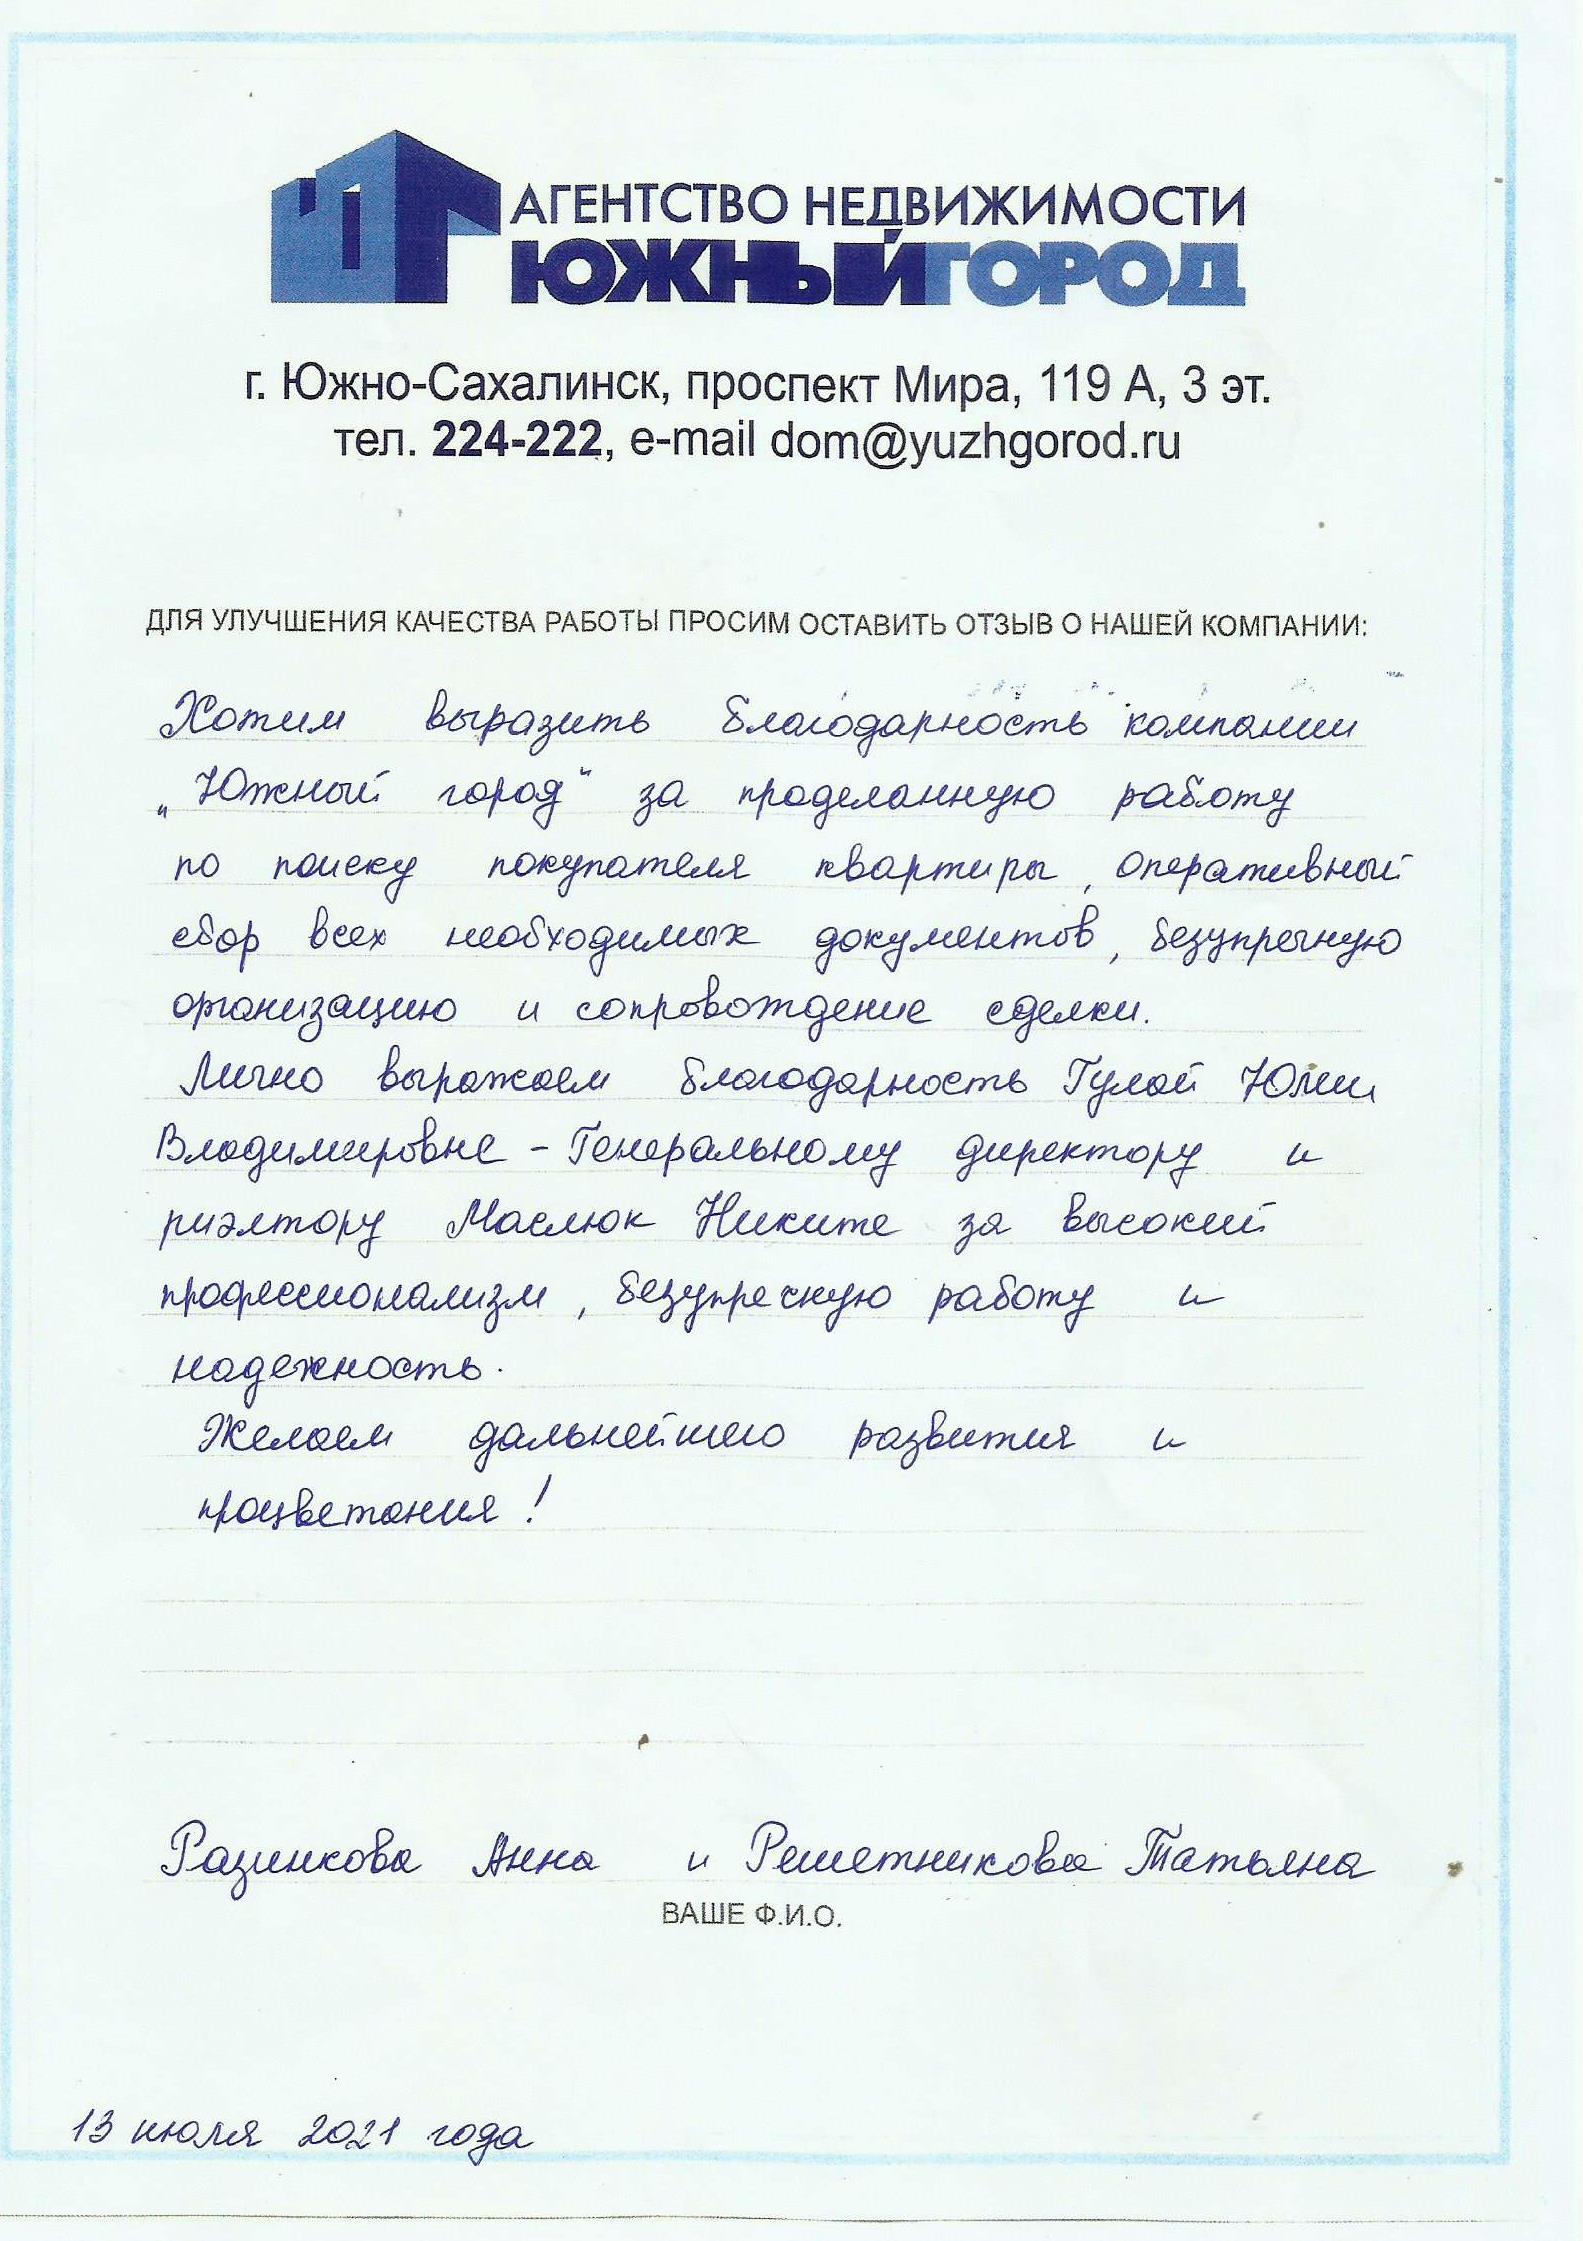 АГЕНТСТВО НЕДВИЖИМОСТИ
ЮЖНЫЙГОРОД
г. Южно-Сахалинск, проспект Мира, 119 А, 3 эт.
тел. 224-222, e-mail dom@yuzhgorod.ru
ДЛЯ УЛУЧШЕНИЯ КАЧЕСТВА РАБОТЫ ПРОСИМ ОСТАВИТЬ ОТЗЫВ О НАШЕЙ КОМПАНИИ:
Хотим выразить благодарность компании
„Южный город“ за проделанную работу
по поиску покупателя квартиры, оперативный
сбор всех необходимых документов, безупречную
организацию и сопровождение сделки.
Лично выражаем благодарность Гулой Юлии
Владимировне - Генеральному директору и
риэлтору Маслюк Никите за высокий
профессионализм, безупречную работу и
надежность.
Желаем дальнейшего развития и
процветания!
Разинкова Анна и Решетникова Татьяна
ВАШЕ Ф.И.О.
13 июля 2021 года